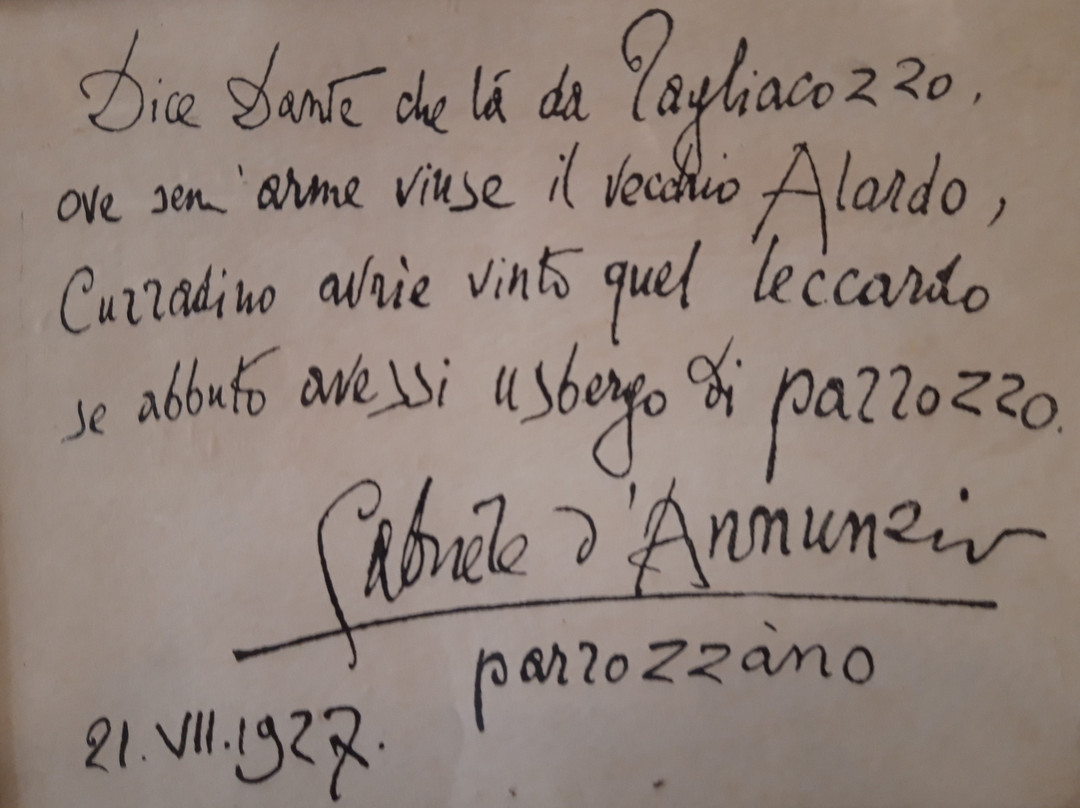 Dice Dante che là da Tagliacozzo,
ove senz'arme vinse il vecchio Alardo,
Curradino avrìe vinto quel leccardo
se abbuto avessi usbergo di parrozzo.
Gabriele d'Annunzio
parrozzàno
21.VII.1927.